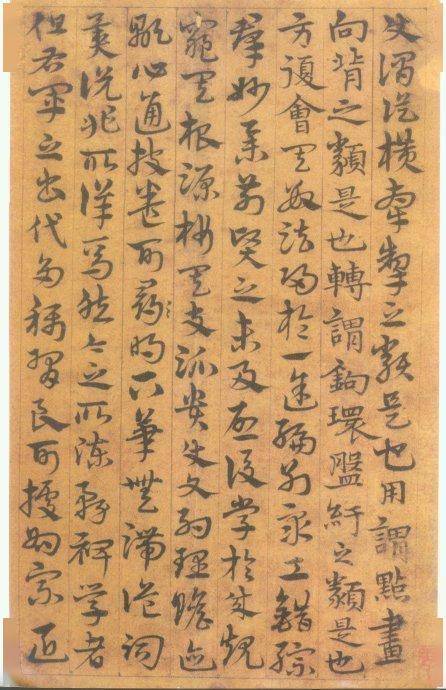 使謂縱橫牽掣之類是也用謂點畫
向背之類是也轉謂鉤環盤紆之類是也
方復會其數法歸於一途編列眾工錯綜
羣妙舉前賢之未及啟後學於成規
窺其根源析其枝派貴使文約理贍迹
顯心通披卷可明下筆無滯詭詞
異說非所詳焉然今之所陳務裨學者
但右軍之書代多稱習良可據為宗匠